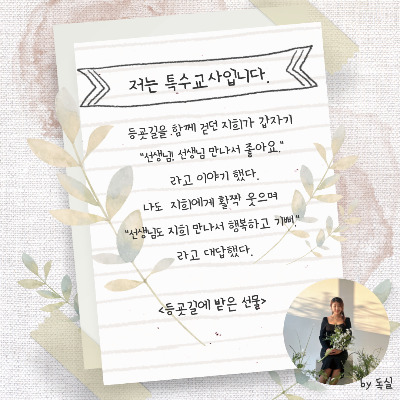 저는 특수교사입니다.
등굣길을 함께 걷던 지희가 갑자기
"선생님, 선생님 만나서 좋아요."
라고 이야기 했다.
나도 지희에게 활짝 웃으며
"선생님도 지희 만나서 행복하고 기뻐."
라고 대답했다.
<등굣길에 받은 선물>
by 독실